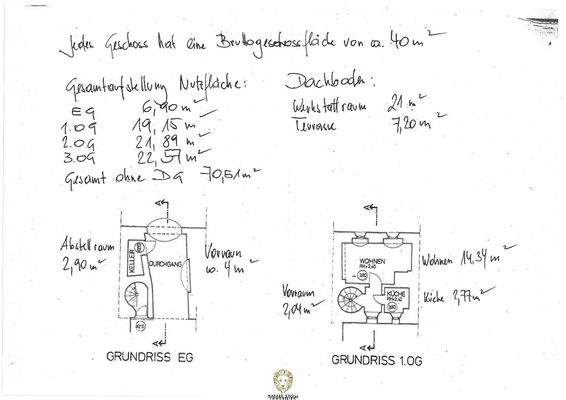 Jedes Geschoss hat eine Bruttogeschossfläche von ca. 40 m²
Gesamtaufstellung Nutzfläche:
EG 6,90 m²
1.OG 19,15 m²
2.OG 21,89 m²
3.OG 22,57 m²
Gesamt ohne DG 70,51 m²
Dachboden:
Werkstattraum 21 m²
Terrasse 7,20 m²
Abstellraum
2,90 m²
KELLER
DURCHGANG
Vorraum
ca. 4 m²
GRUNDRISS EG
WOHNEN
RH=2,40
KÜCHE
RH=2,40
Wohnen 14,34 m²
Küche 2,77 m²
Vorraum
2,04 m²
GRUNDRISS 1.OG